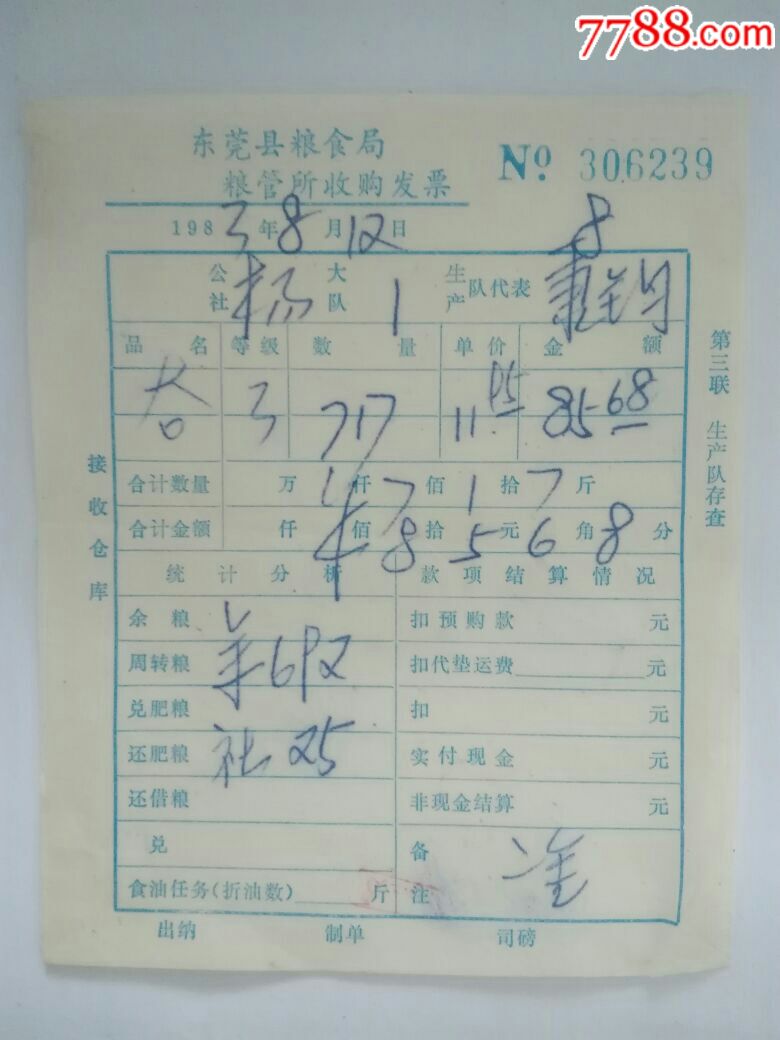 7788.com
东莞县粮食局
粮管所收购发票
No 306239
1983年8月12日
8
公社 杨 大队 1 生产队代表
品名 等级 数量 单价 金额
谷 3 717 11.95 85.68
合计数量 万 仟 7 佰 1 拾 7 斤
合计金额 仟 佰 8 拾 5 元 6 角 8 分
统计分析 款项结算情况
余粮 扣预购款 元
周转粮 692 扣代垫运费 元
兑肥粮 扣 元
还肥粮 社 25 实付现金 元
还借粮 非现金结算 元
兑 备注
食油任务(折油数) 斤
出纳 制单 司磅
接收仓库
第三联 生产队存查